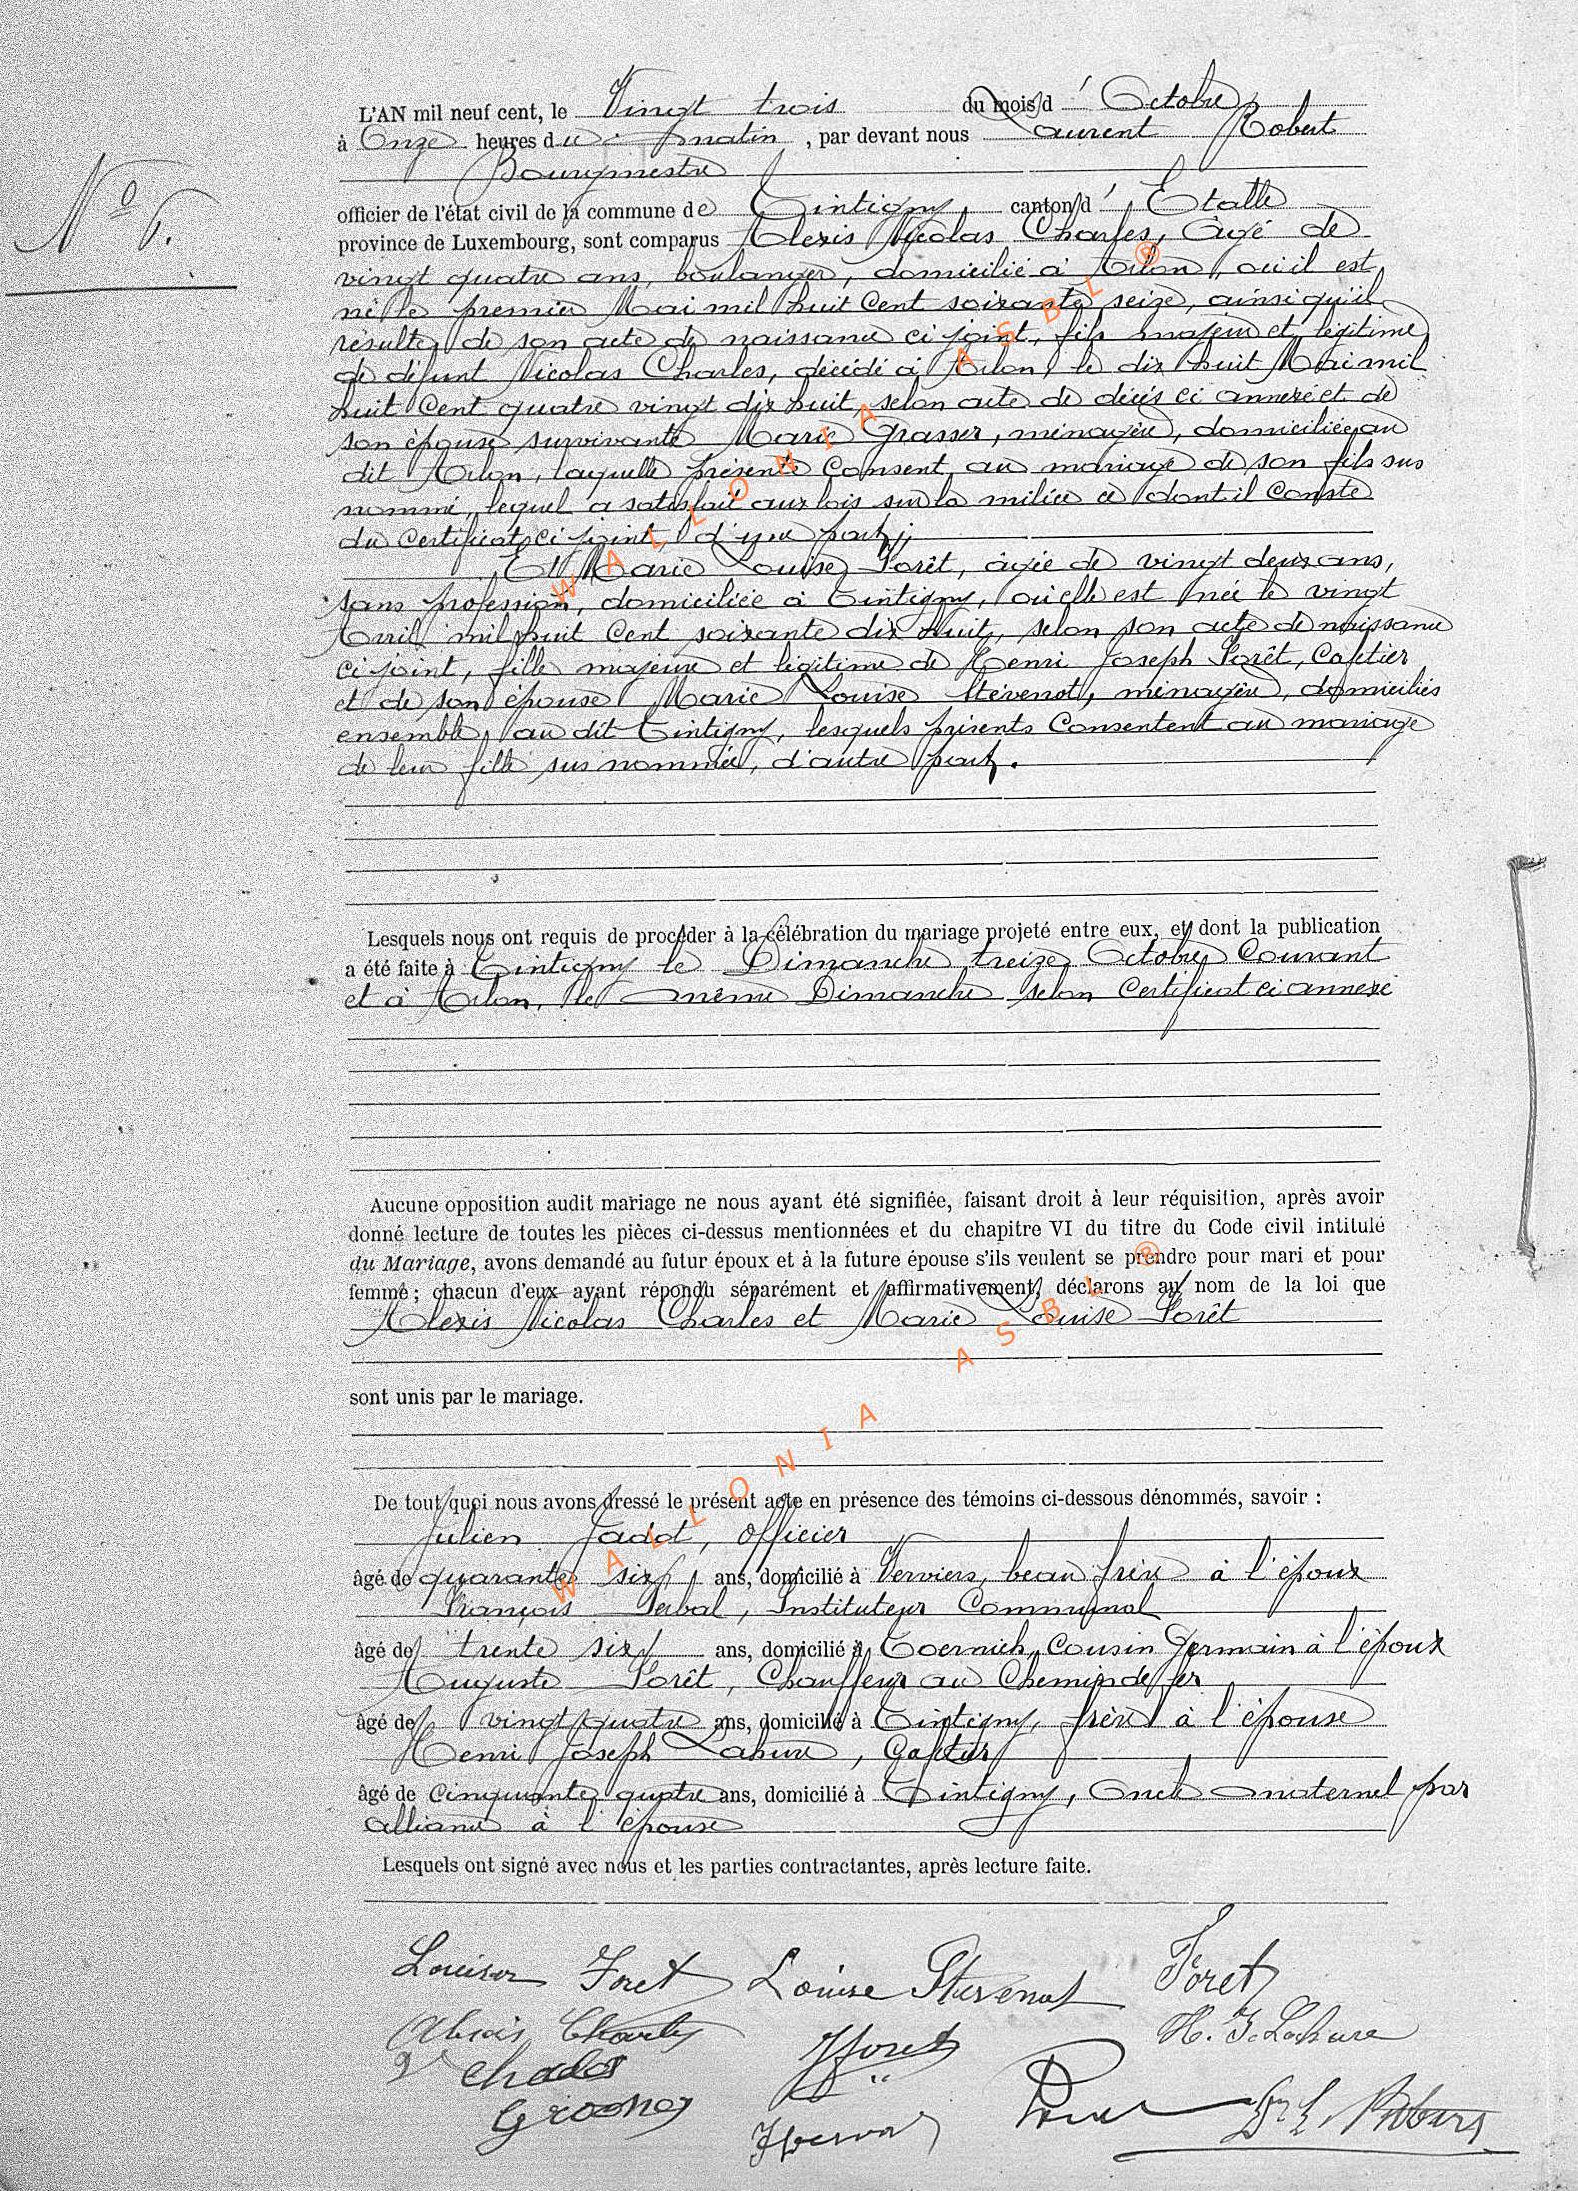 N° 6.
L'AN mil neuf cent, le Vingt trois du mois d' Octobre
à Onze heures du matin, par devant nous Laurent Robert
Bourgmestre
officier de l'état civil de la commune de Tintigny, canton d' Etalle
province de Luxembourg, sont comparus Alexis Nicolas Charles, âgé de
vingt quatre ans, boulanger, domicilié à Arlon, où il est
né le premier Mai mil huit Cent soixante seize, ainsi qu'il
résulte de son acte de naissance ci joint, fils majeur et légitime
de défunt Nicolas Charles, décédé à Arlon, le dix huit Mai mil
huit Cent quatre vingt dix huit, selon acte de décès ci annexé et de
son épouse survivante Marie Grasser, ménagère, domiciliée au
dit Arlon, laquelle présente Consent au mariage de son fils sus
nommé, lequel a satisfait aux lois sur la milice ce dont il Conste
du Certificat ci joint, d'une part;
Et Marie Louise Forêt, âgée de vingt deux ans,
sans profession, domiciliée à Tintigny, où elle est née le vingt
Avril mil huit Cent soixante dix huit, selon son acte de naissance
ci joint, fille majeure et légitime de Henri Joseph Forêt, Cafetier
et de son épouse Marie Louise Stévenot, ménagère, domiciliés
ensemble au dit Tintigny, lesquels présents Consentent au mariage
de leur fille sus nommée, d'autre part.
Lesquels nous ont requis de procéder à la célébration du mariage projeté entre eux, et dont la publication
a été faite à Tintigny le Dimanche treize Octobre Courant
et à Arlon, le même Dimanche selon Certificat ci annexé
Aucune opposition audit mariage ne nous ayant été signifiée, faisant droit à leur réquisition, après avoir
donné lecture de toutes les pièces ci-dessus mentionnées et du chapitre VI du titre du Code civil intitulé
du Mariage, avons demandé au futur époux et à la future épouse s'ils veulent se prendre pour mari et pour
femme; chacun d'eux ayant répondu séparément et affirmativement, déclarons au nom de la loi que
Alexis Nicolas Charles et Marie Louise Forêt
sont unis par le mariage.
De tout quoi nous avons dressé le présent acte en présence des témoins ci-dessous dénommés, savoir :
Julien Jadot, officier
âgé de quarante six ans, domicilié à Verviers, beau frère à l'époux
François Serbal, Instituteur Communal
âgé de trente six ans, domicilié à Toernich, Cousin Germain à l'époux
Auguste Forêt, Chauffeur au Chemin de fer
âgé de vingt quatre ans, domicilié à Tintigny, frère à l'épouse
Henri Joseph Lahure, Cafetier
âgé de Cinquante quatre ans, domicilié à Tintigny, Oncle maternel par
alliance à l'épouse
Lesquels ont signé avec nous et les parties contractantes, après lecture faite.
Louisa Foret Louise Stevenot Foret
Alexis Charles H. J. Lahure
WALLONIA ASBL ®
WALLONIA ASBL ®